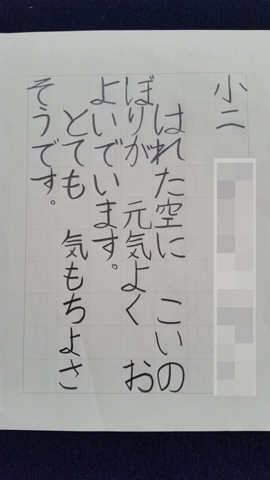 小二
はれた空に こいの
ぼりが 元気よく お
よいでいます。
とても 気もちよさ
そうです。